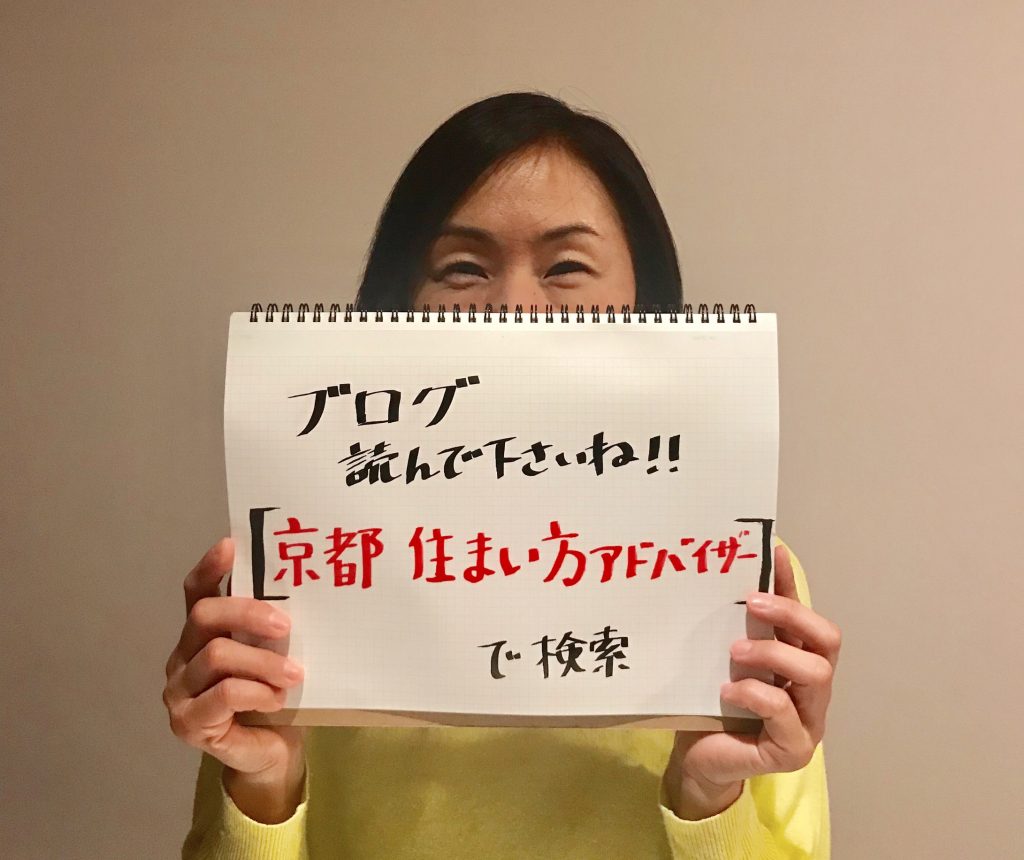 ブログ
読んで下さいね!!
[京都 住まい方アドバイザー]
で検索